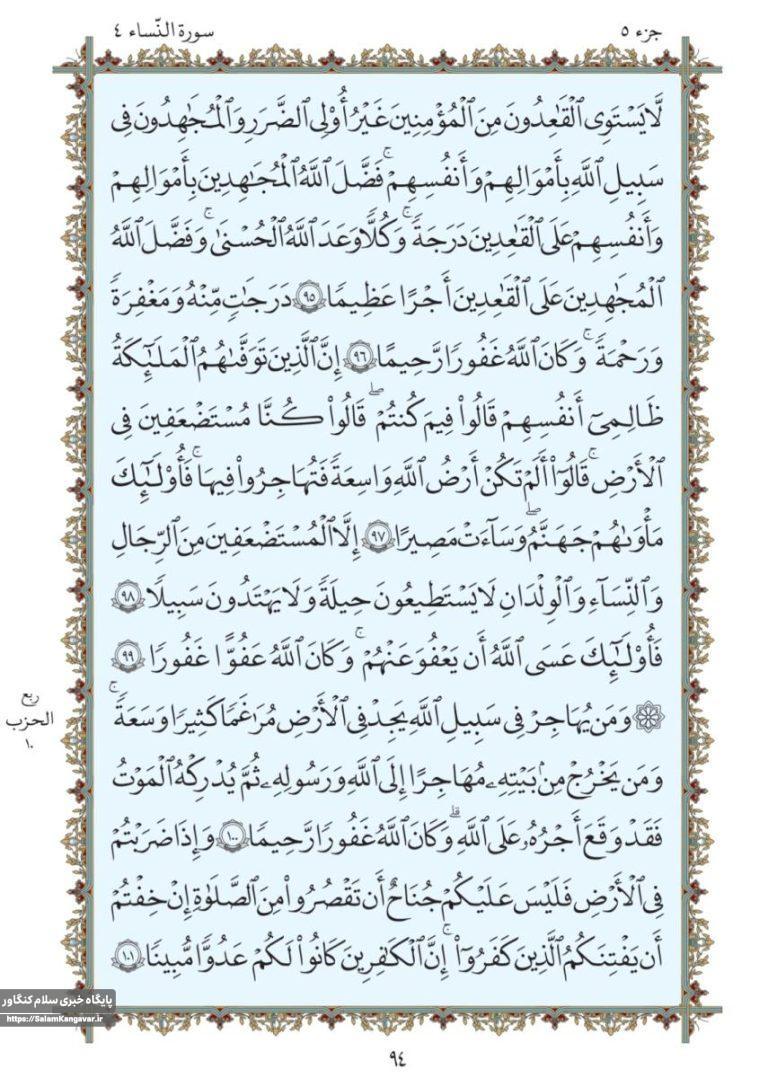 جزء ٥
سورة النّساء ٤
لَّا يَسْتَوِى ٱلْقَٰعِدُونَ مِنَ ٱلْمُؤْمِنِينَ غَيْرُ أُو۟لِى ٱلضَّرَرِ وَٱلْمُجَٰهِدُونَ فِى
سَبِيلِ ٱللَّهِ بِأَمْوَٰلِهِمْ وَأَنفُسِهِمْ ۚ فَضَّلَ ٱللَّهُ ٱلْمُجَٰهِدِينَ بِأَمْوَٰلِهِمْ
وَأَنفُسِهِمْ عَلَى ٱلْقَٰعِدِينَ دَرَجَةً ۚ وَكُلًّا وَعَدَ ٱللَّهُ ٱلْحُسْنَىٰ ۚ وَفَضَّلَ ٱللَّهُ
ٱلْمُجَٰهِدِينَ عَلَى ٱلْقَٰعِدِينَ أَجْرًا عَظِيمًا ٩٥ دَرَجَٰتٍ مِّنْهُ وَمَغْفِرَةً
وَرَحْمَةً ۚ وَكَانَ ٱللَّهُ غَفُورًا رَّحِيمًا ٩٦ إِنَّ ٱلَّذِينَ تَوَفَّىٰهُمُ ٱلْمَلَٰٓئِكَةُ
ظَالِمِىٓ أَنفُسِهِمْ قَالُوا۟ فِيمَ كُنتُمْ ۖ قَالُوا۟ كُنَّا مُسْتَضْعَفِينَ فِى
ٱلْأَرْضِ ۚ قَالُوٓا۟ أَلَمْ تَكُنْ أَرْضُ ٱللَّهِ وَٰسِعَةً فَتُهَاجِرُوا۟ فِيهَا ۚ فَأُو۟لَٰٓئِكَ
مَأْوَىٰهُمْ جَهَنَّمُ ۖ وَسَآءَتْ مَصِيرًا ٩٧ إِلَّا ٱلْمُسْتَضْعَفِينَ مِنَ ٱلرِّجَالِ
وَٱلنِّسَآءِ وَٱلْوِلْدَٰنِ لَا يَسْتَطِيعُونَ حِيلَةً وَلَا يَهْتَدُونَ سَبِيلًا ٩٨
فَأُو۟لَٰٓئِكَ عَسَى ٱللَّهُ أَن يَعْفُوَ عَنْهُمْ ۚ وَكَانَ ٱللَّهُ عَفُوًّا غَفُورًا ٩٩
۞ وَمَن يُهَاجِرْ فِى سَبِيلِ ٱللَّهِ يَجِدْ فِى ٱلْأَرْضِ مُرَٰغَمًا كَثِيرًا وَسَعَةً ۚ
ربع
الحزب
١٠
وَمَن يَخْرُجْ مِنۢ بَيْتِهِۦ مُهَاجِرًا إِلَى ٱللَّهِ وَرَسُولِهِۦ ثُمَّ يُدْرِكْهُ ٱلْمَوْتُ
فَقَدْ وَقَعَ أَجْرُهُۥ عَلَى ٱللَّهِ ۗ وَكَانَ ٱللَّهُ غَفُورًا رَّحِيمًا ١٠٠ وَإِذَا ضَرَبْتُمْ
فِى ٱلْأَرْضِ فَلَيْسَ عَلَيْكُمْ جُنَاحٌ أَن تَقْصُرُوا۟ مِنَ ٱلصَّلَوٰةِ إِنْ خِفْتُمْ
أَن يَفْتِنَكُمُ ٱلَّذِينَ كَفَرُوٓا۟ ۚ إِنَّ ٱلْكَٰفِرِينَ كَانُوا۟ لَكُمْ عَدُوًّا مُّبِينًا ١٠١
پایگاه خبری سلام کنگاور
https://SalamKangavar.ir
٩٤